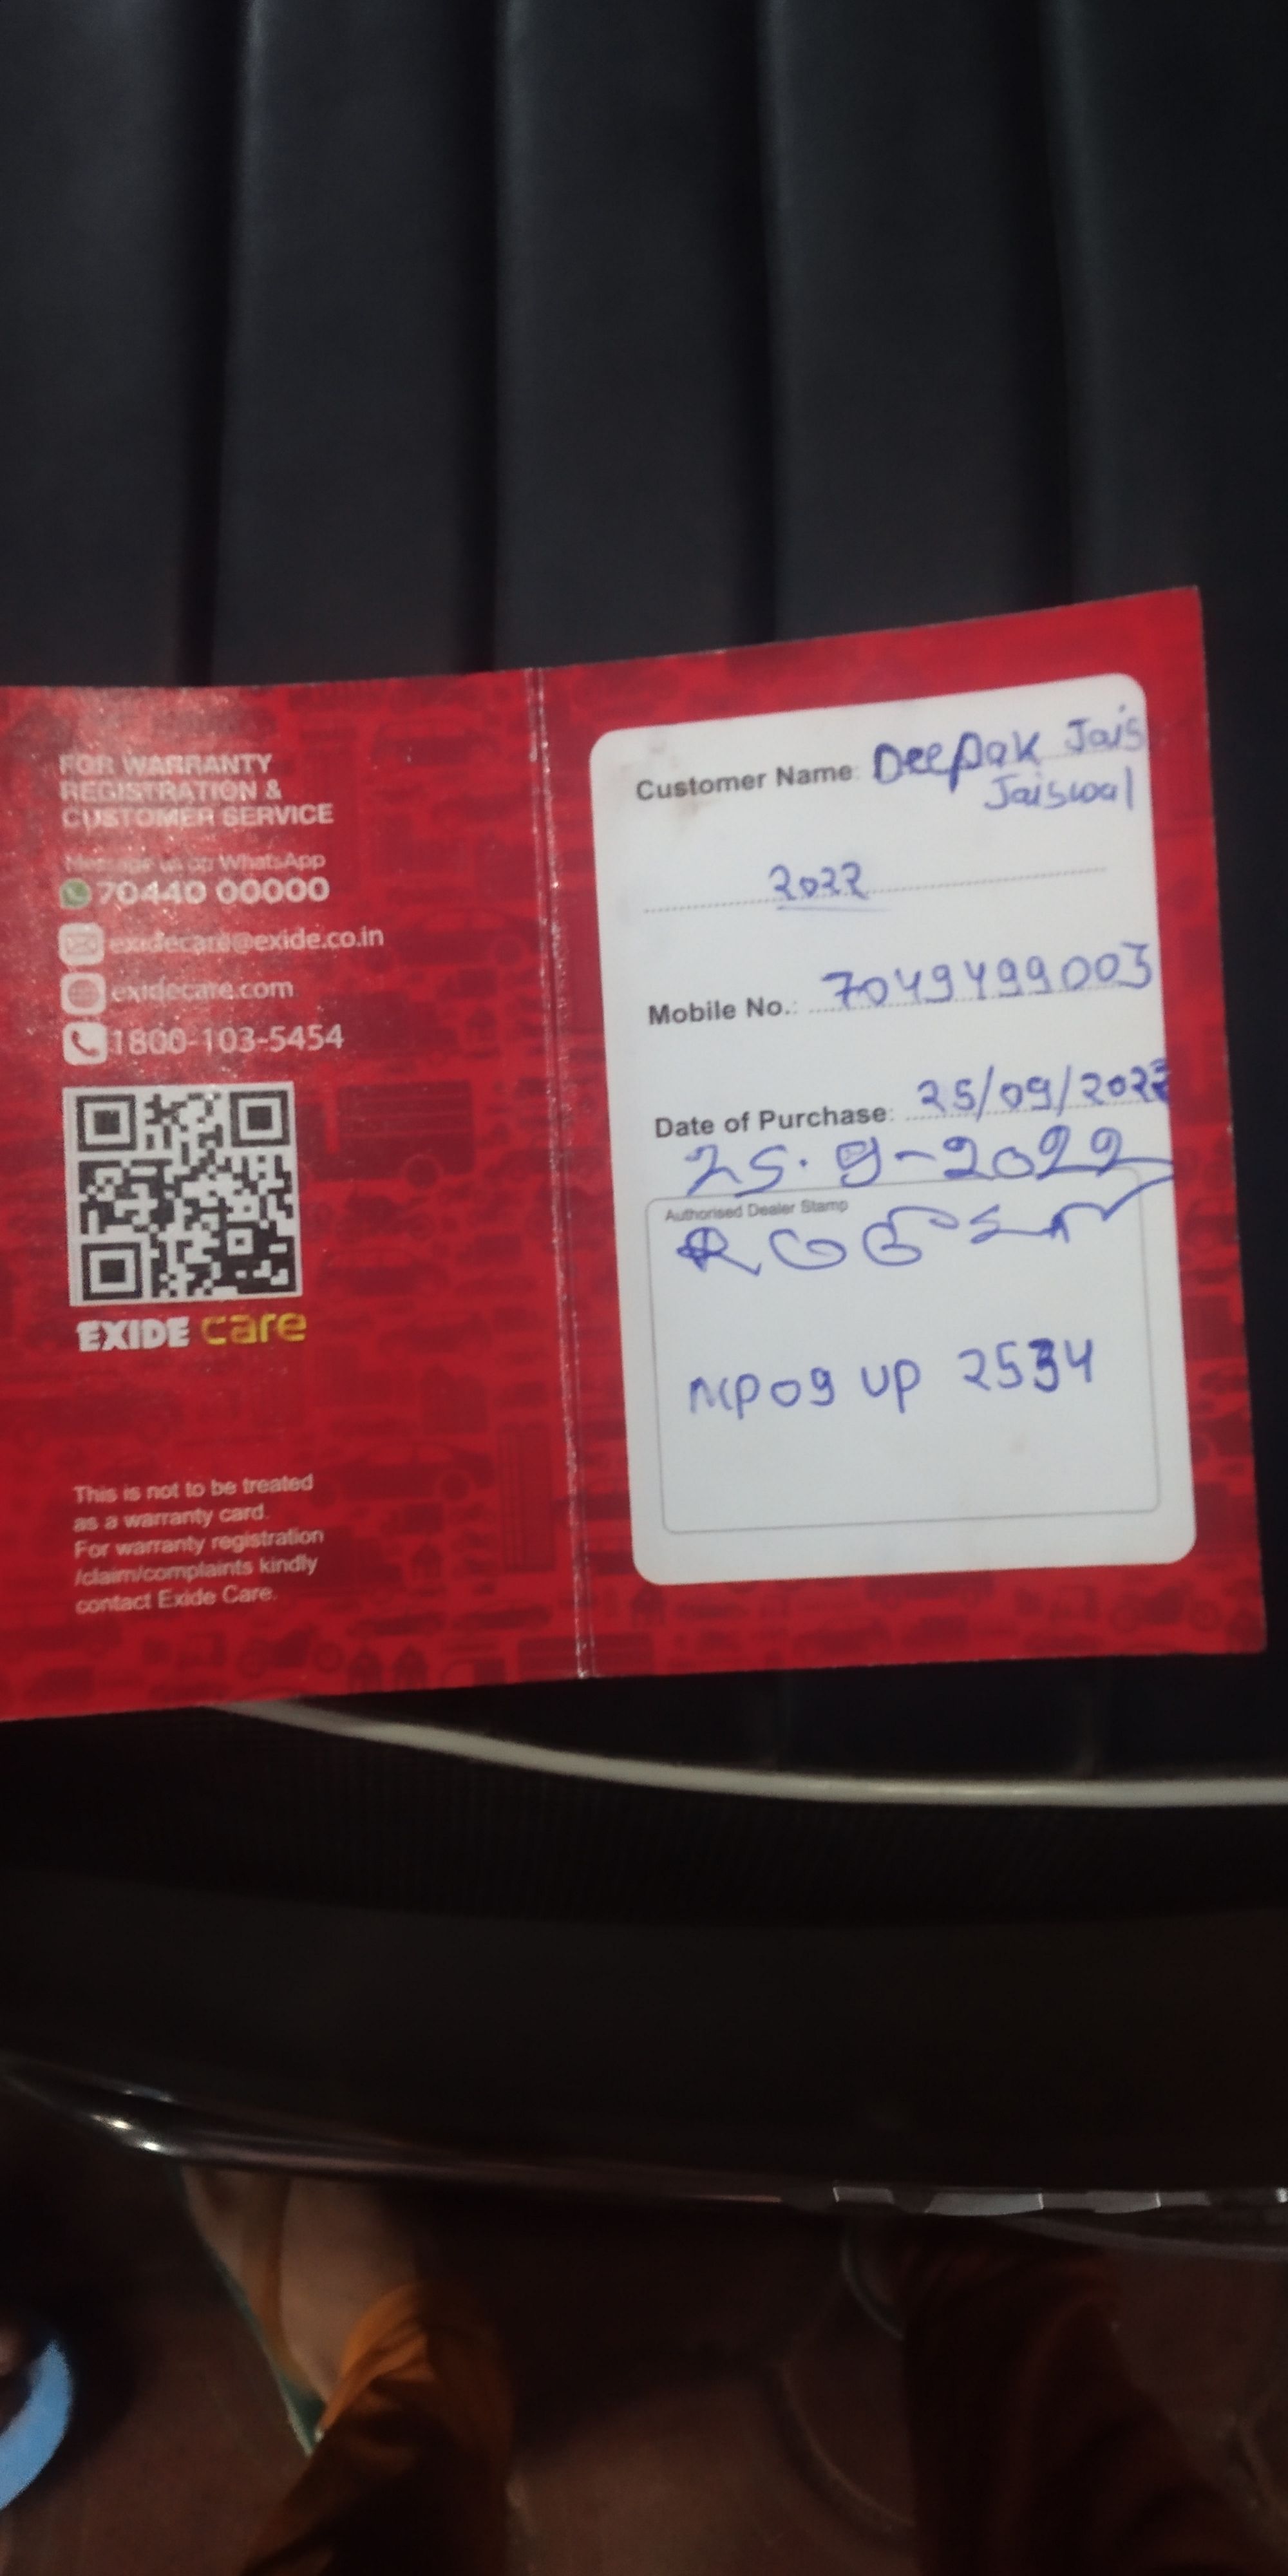 FOR WARRANTY
REGISTRATION &
CUSTOMER SERVICE
Message us on WhatsApp
70440 00000
exidecare@exide.co.in
exidecare.com
1800-103-5454
EXIDE care
This is not to be treated
as a warranty card.
For warranty registration
/claim/complaints kindly
contact Exide Care.
Customer Name: Deepak Jais
Jaiswal
2022
Mobile No.: 7049499003
Date of Purchase: 25/09/2022
25.9-2022
Authorised Dealer Stamp
MP09 UP 2534